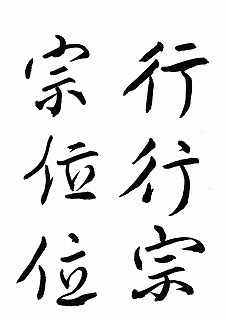 行行宗
宗位位